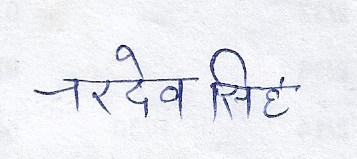 नरदेव सिंह